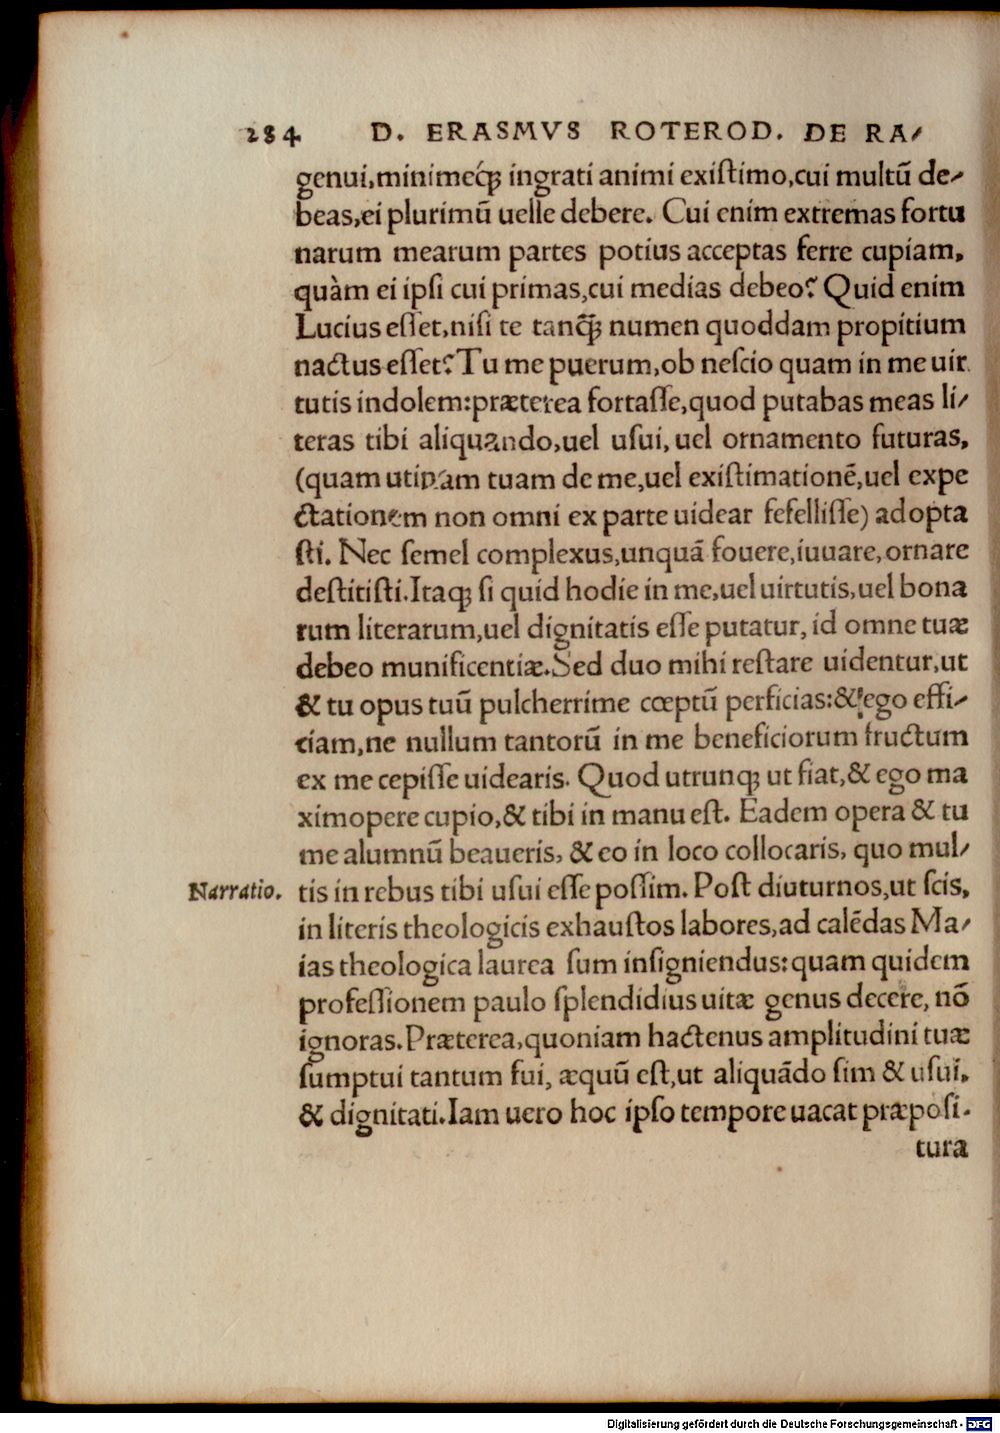 284 D. ERASMVS ROTEROD. DE RA⸗
genui,minimeq́; ingrati animi existimo,cui multū de⸗
beas,ei plurimū uelle debere. Cui enim extremas fortu
narum mearum partes potius acceptas ferre cupiam,
quàm ei ipsi cui primas,cui medias debeo? Quid enim
Lucius esset,nisi te tanq̃; numen quoddam propitium
nactus esset? Tu me puerum,ob nescio quam in me uir
tutis indolem:præterea fortasse,quod putabas meas li⸗
teras tibi aliquando,uel usui, uel ornamento futuras,
(quam utinam tuam de me,uel existimationē,uel expe
ctationem non omni ex parte uidear fefellisse) adopta
sti. Nec semel complexus,unquā fouere,iuuare,ornare
destitisti.Itaq; si quid hodie in me,uel uirtutis,uel bona
rum literarum,uel dignitatis esse putatur, id omne tuæ
debeo munificentiæ.Sed duo mihi restare uidentur,ut
& tu opus tuū pulcherrime cœptū perficias:& ego effi⸗
ciam,ne nullum tantorū in me beneficiorum fructum
ex me cepisse uidearis. Quod utrunq; ut fiat,& ego ma
ximopere cupio,& tibi in manu est. Eadem opera & tu
me alumnū beaueris, & eo in loco collocaris, quo mul⸗
Narratio. tis in rebus tibi usui esse possim. Post diuturnos,ut scis,
in literis theologicis exhaustos labores,ad calēdas Ma⸗
ias theologica laurea sum insigniendus:quam quidem
professionem paulo splendidius uitæ genus decere, nō
ignoras.Præterea,quoniam hactenus amplitudini tuæ
sumptui tantum fui, æquū est,ut aliquādo sim & usui,
& dignitati.Iam uero hoc ipso tempore uacat præposi-
tura
Digitalisierung gefördert durch die Deutsche Forschungsgemeinschaft - DFG